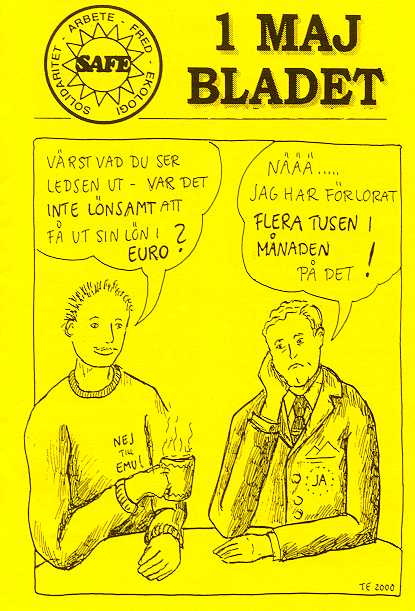 SOLIDARITET - ARBETE - FRED - EKOLOGI
SAFE
1 MAJ
BLADET
VÄRST VAD DU SER
LEDSEN UT - VAR DET
INTE LÖNSAMT ATT
FÅ UT SIN LÖN I
EURO?
NÄÄÄ.....
JAG HAR FÖRLORAT
FLERA TUSEN I
MÅNADEN
PÅ DET!
NEJ
TILL
EMU!
JA
TE 2000